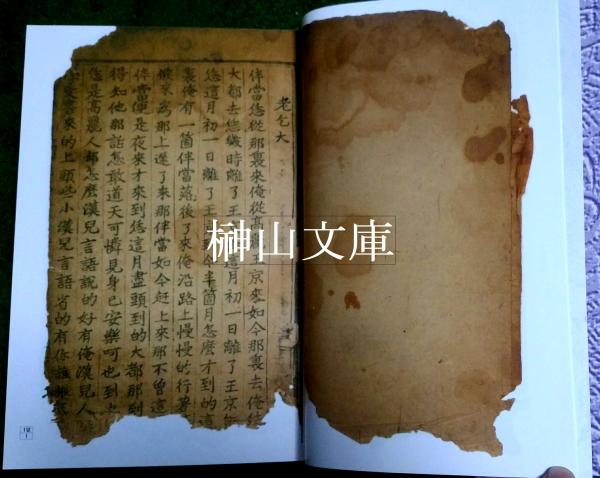 老乞大
伴當恁從那裏來俺從高麗王京來如今那裏去俺往
大都去恁幾時離了王京俺這月初一日離了王京
恁這月初一日離了王京到今半箇月怎麼才到的這
裏俺有一箇伴當落後了來俺沿路上慢慢的行着
候來爲那上遲了來那伴當如今赶上來那不曾這
伴當便是夜來才到恁這月盡頭到的大都那到
得知他那話怎敢道天可憐見身己安樂可也到
恁是高麗人却怎麼漢兒言語說的好有俺漢兒人
上頭些小漢兒言語省的有你誰
榊山文庫